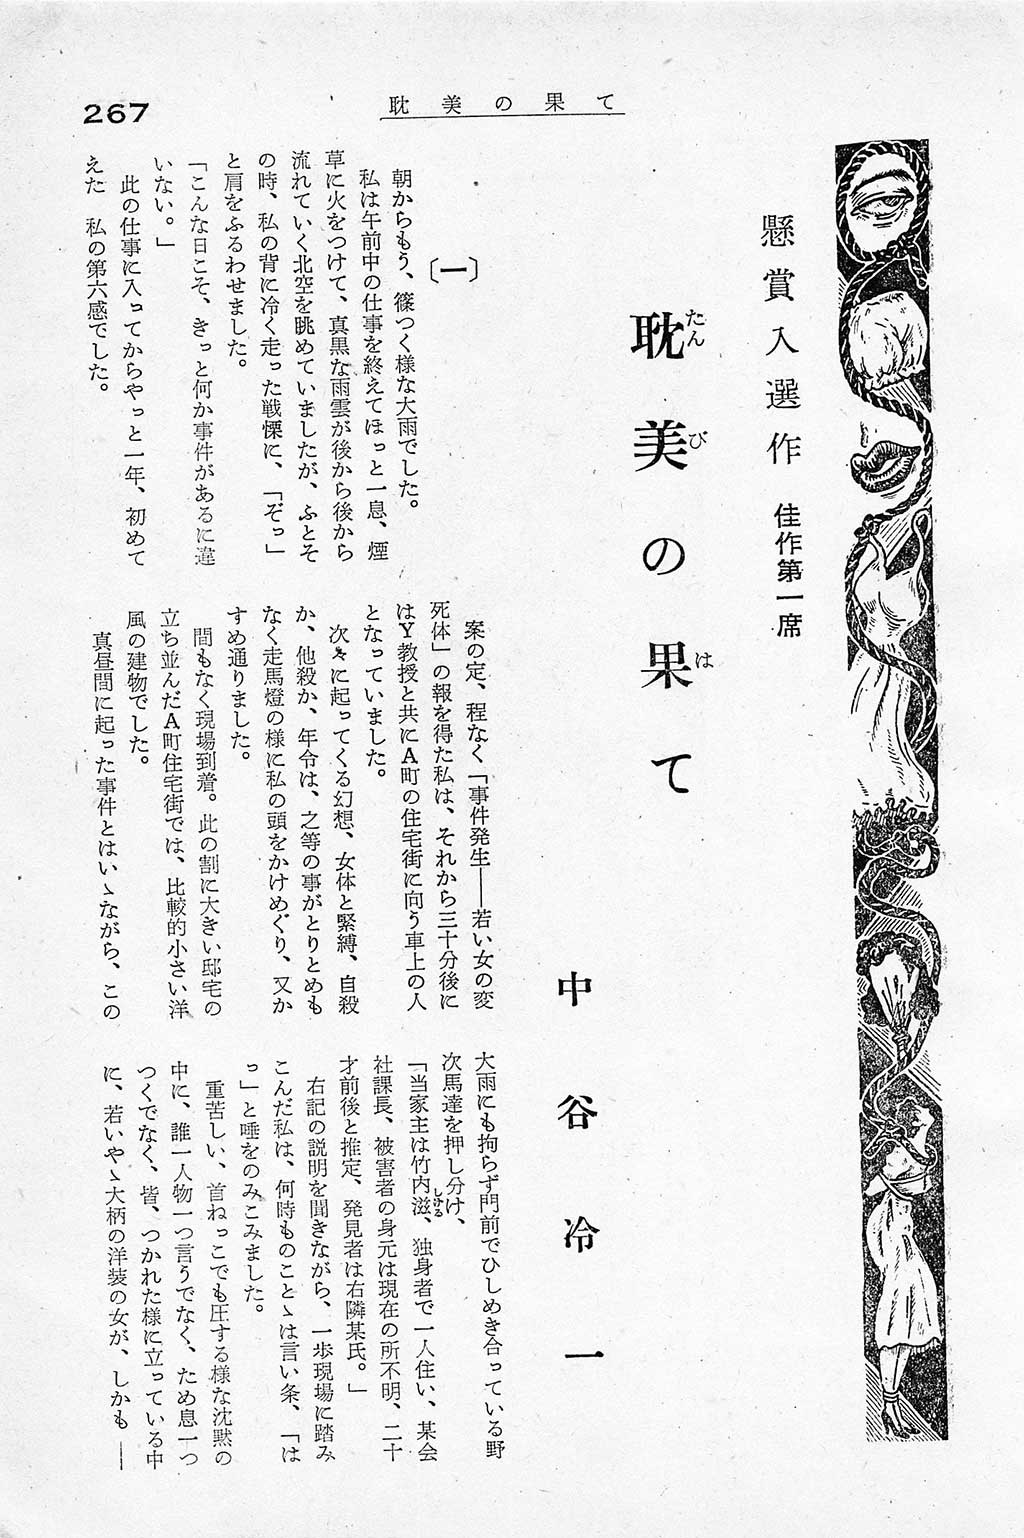 267
耽美の果て
懸賞入選作 佳作第一席
耽美の果て
たん
び
は
中谷冷一
〔一〕
朝からもう、篠つく様な大雨でした。
私は午前中の仕事を終えてほっと一息、煙
草に火をつけて、真黒な雨雲が後から後から
流れていく北空を眺めていましたが、ふとそ
の時、私の背に冷く走った戦慄に、「ぞっ」
と肩をふるわせました。
「こんな日こそ、きっと何か事件があるに違
いない。」
此の仕事に入ってからやっと一年、初めて
えた 私の第六感でした。
案の定、程なく「事件発生――若い女の変
死体」の報を得た私は、それから三十分後に
はY教授と共にA町の住宅街に向う車上の人
となっていました。
次々に起ってくる幻想、女体と緊縛、自殺
か、他殺か、年令は、之等の事がとりとめも
なく走馬燈の様に私の頭をかけめぐり、又か
すめ通りました。
間もなく現場到着。此の割に大きい邸宅の
立ち並んだA町住宅街では、比較的小さい洋
風の建物でした。
真昼間に起った事件とはいゝながら、この
大雨にも拘らず門前でひしめき合っている野
次馬達を押し分け、
「当家主は竹内滋、独身者で一人住い、某会
しげる
社課長、被害者の身元は現在の所不明、二十
才前後と推定、発見者は右隣某氏。」
右記の説明を聞きながら、一歩現場に踏み
こんだ私は、何時ものことゝは言い条、「は
っ」と唾をのみこみました。
重苦しい、首ねっこでも圧する様な沈黙の
中に、誰一人物一つ言うでなく、ため息一つ
つくでなく、皆、つかれた様に立っている中
に、若いやゝ大柄の洋装の女が、しかも――